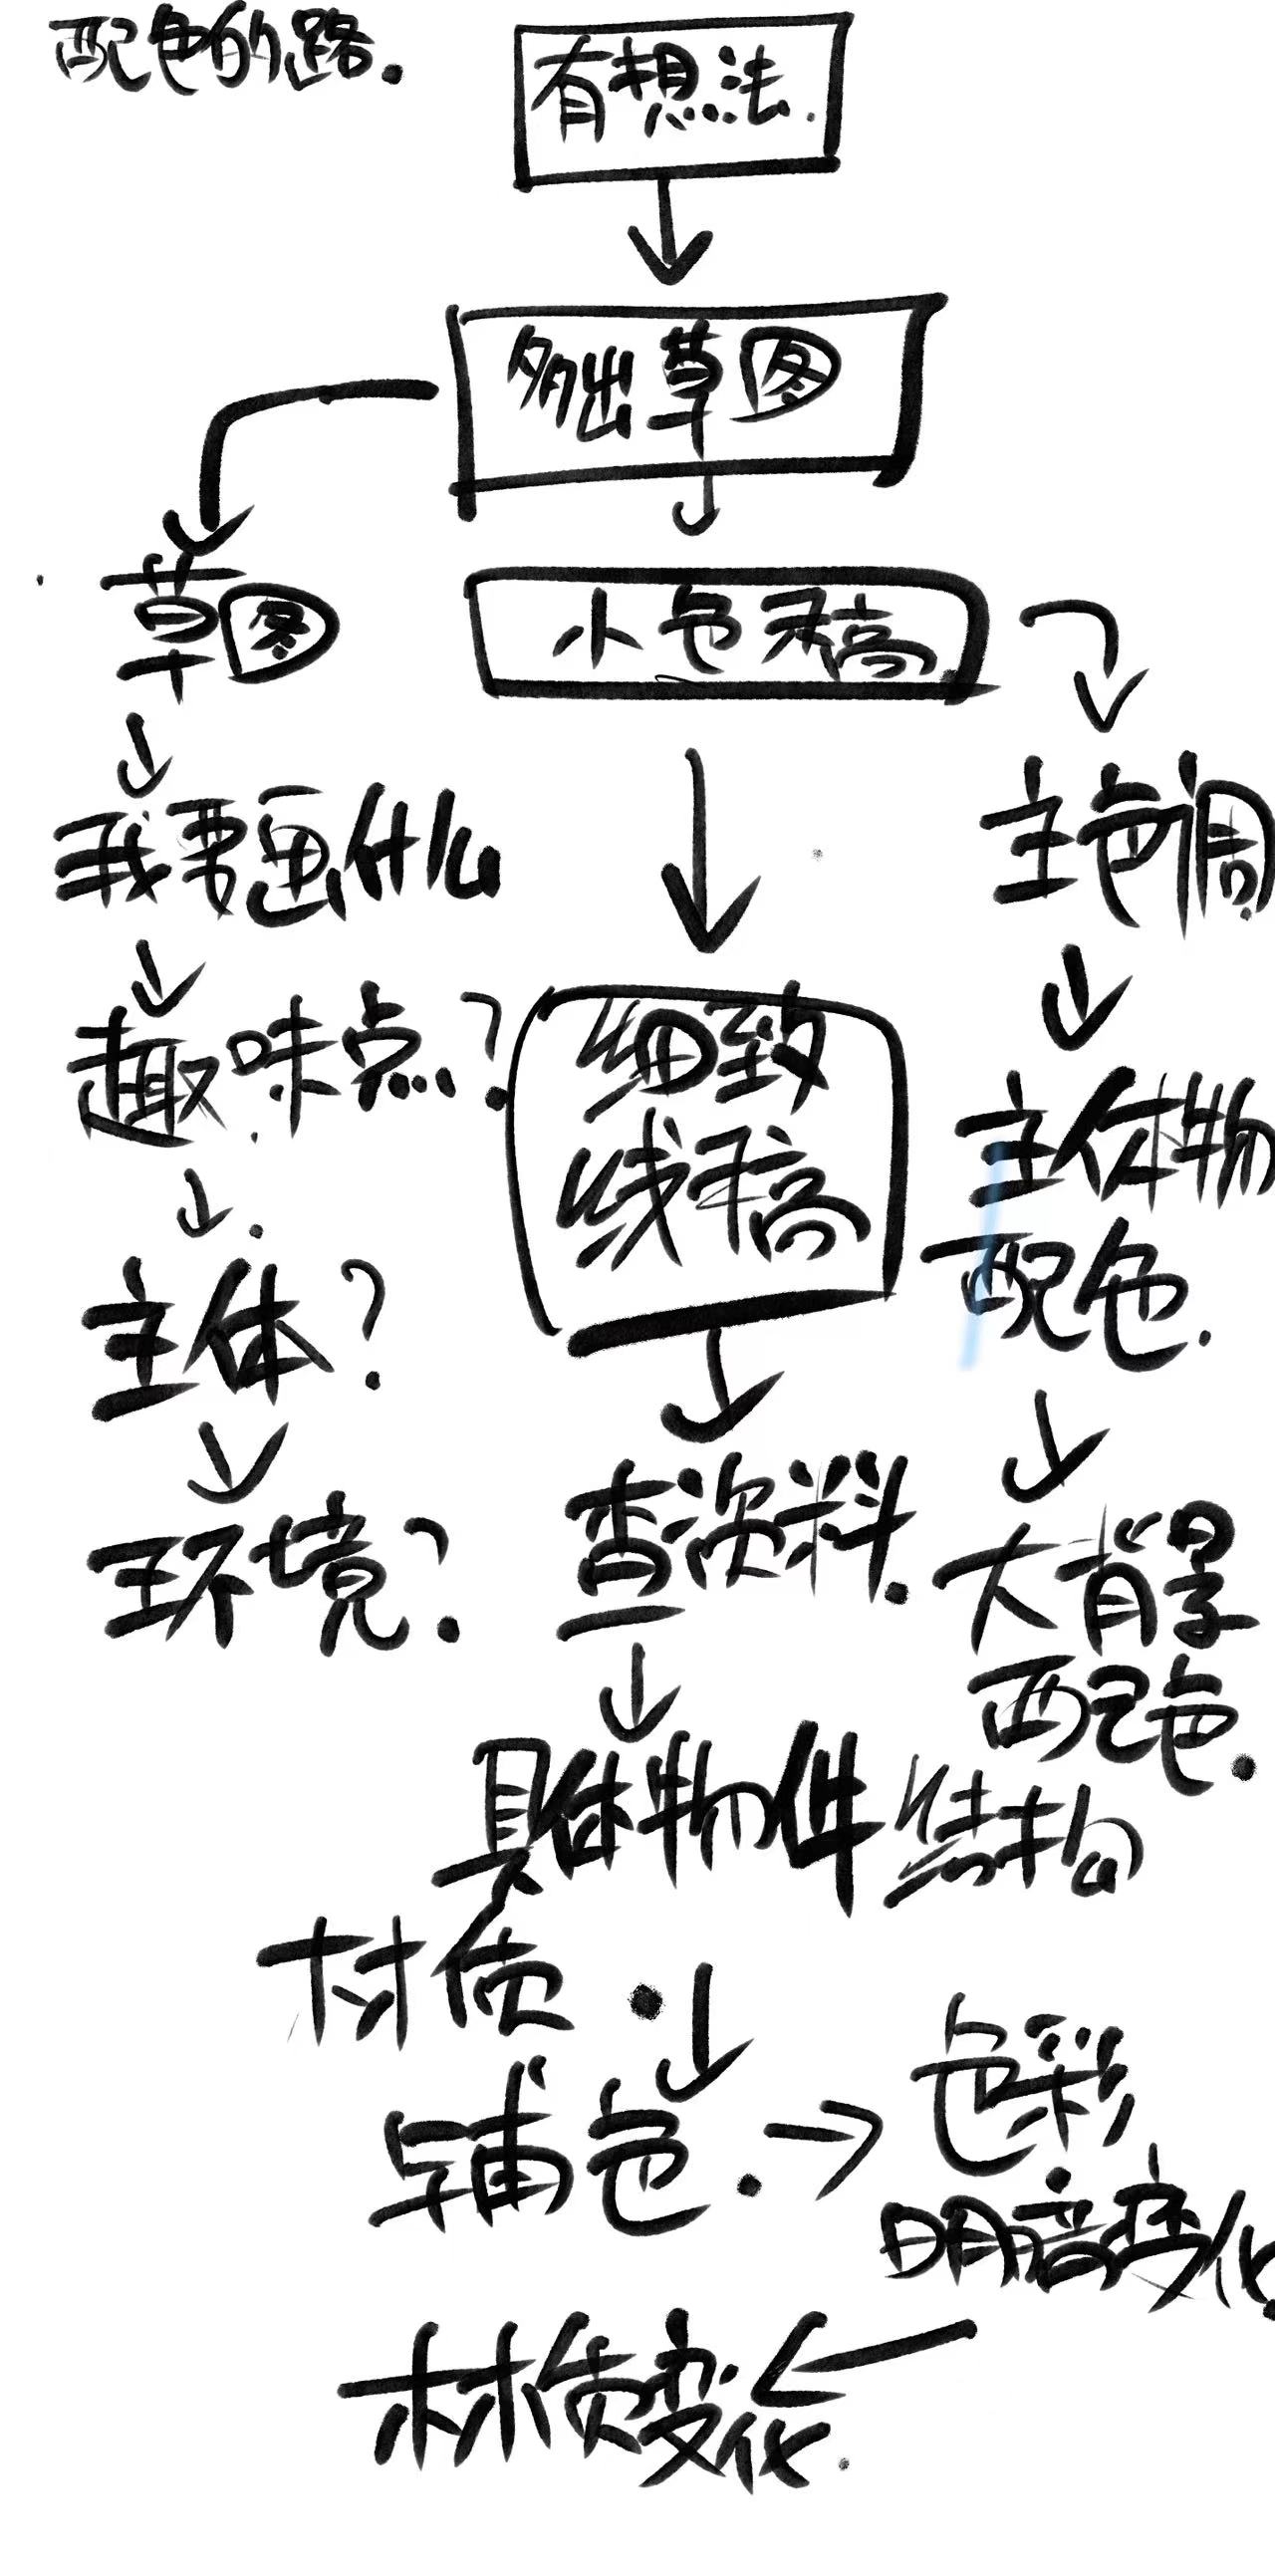 配色的路.
有想法.
多出草图
草图
小色稿
我要画什么
主色调
趣味点?
细致
线稿
主体物
配色.
主体?
环境?
查资料.
大背景
配色.
具体物件结构
材质.
辅色.
色彩
明暗变化.
材质变化.